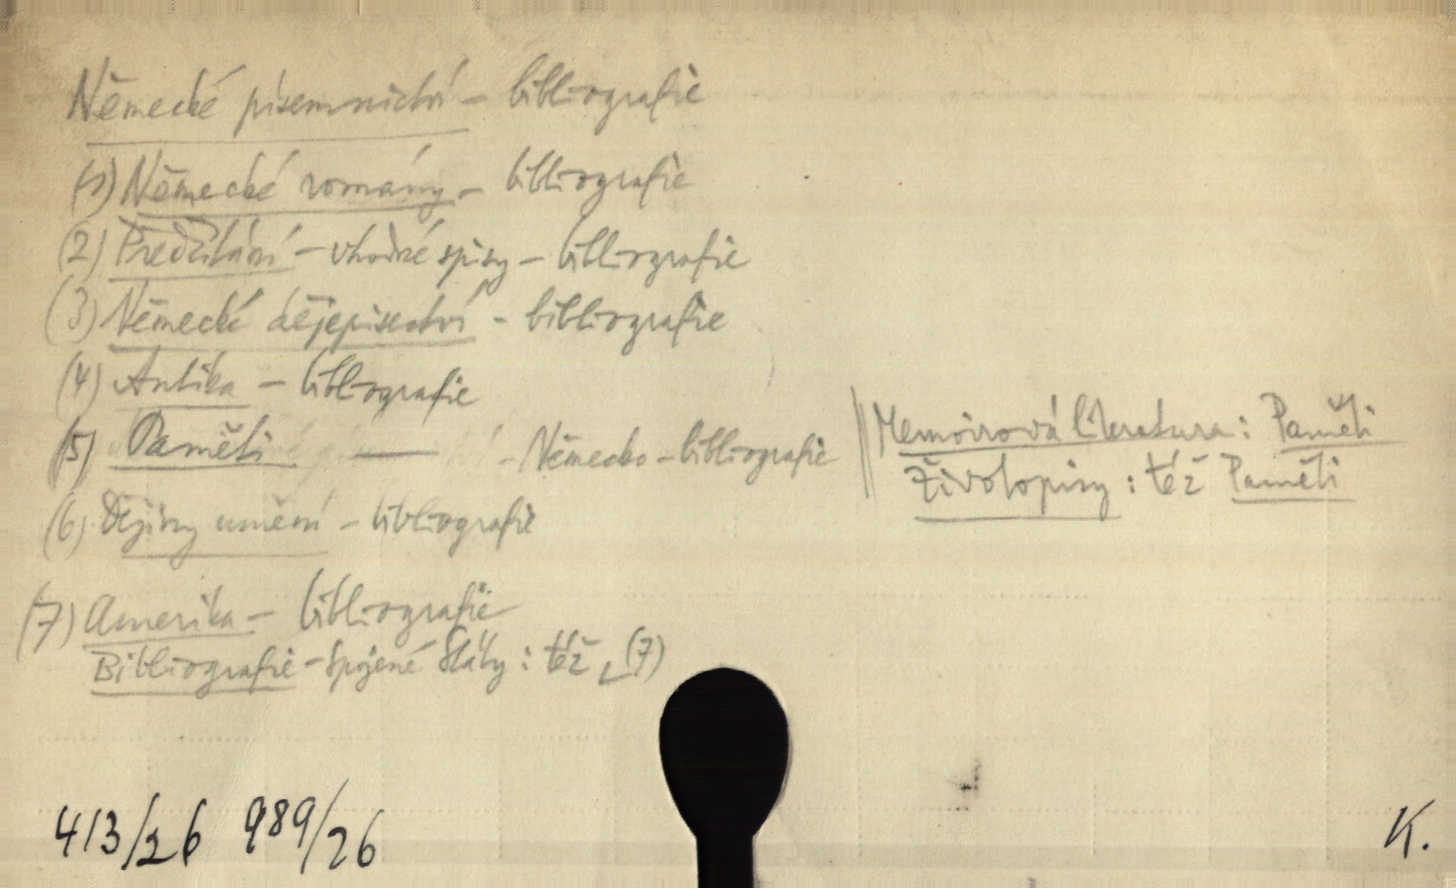 Německé písemnictví - bibliografie
(1) Německé romány - bibliografie
(2) Předčítání - vhodné spisy - bibliografie
(3) Německé dějepisectví - bibliografie
(4) Antika - bibliografie
(5) Paměti - Německo - bibliografie
Memoirová literatura: Paměti
Životopisy: též Paměti
(6) Dějiny umění - bibliografie
(7) Amerika - bibliografie
Bibliografie - Spojené Státy: též (7)
413/26 989/26
K.